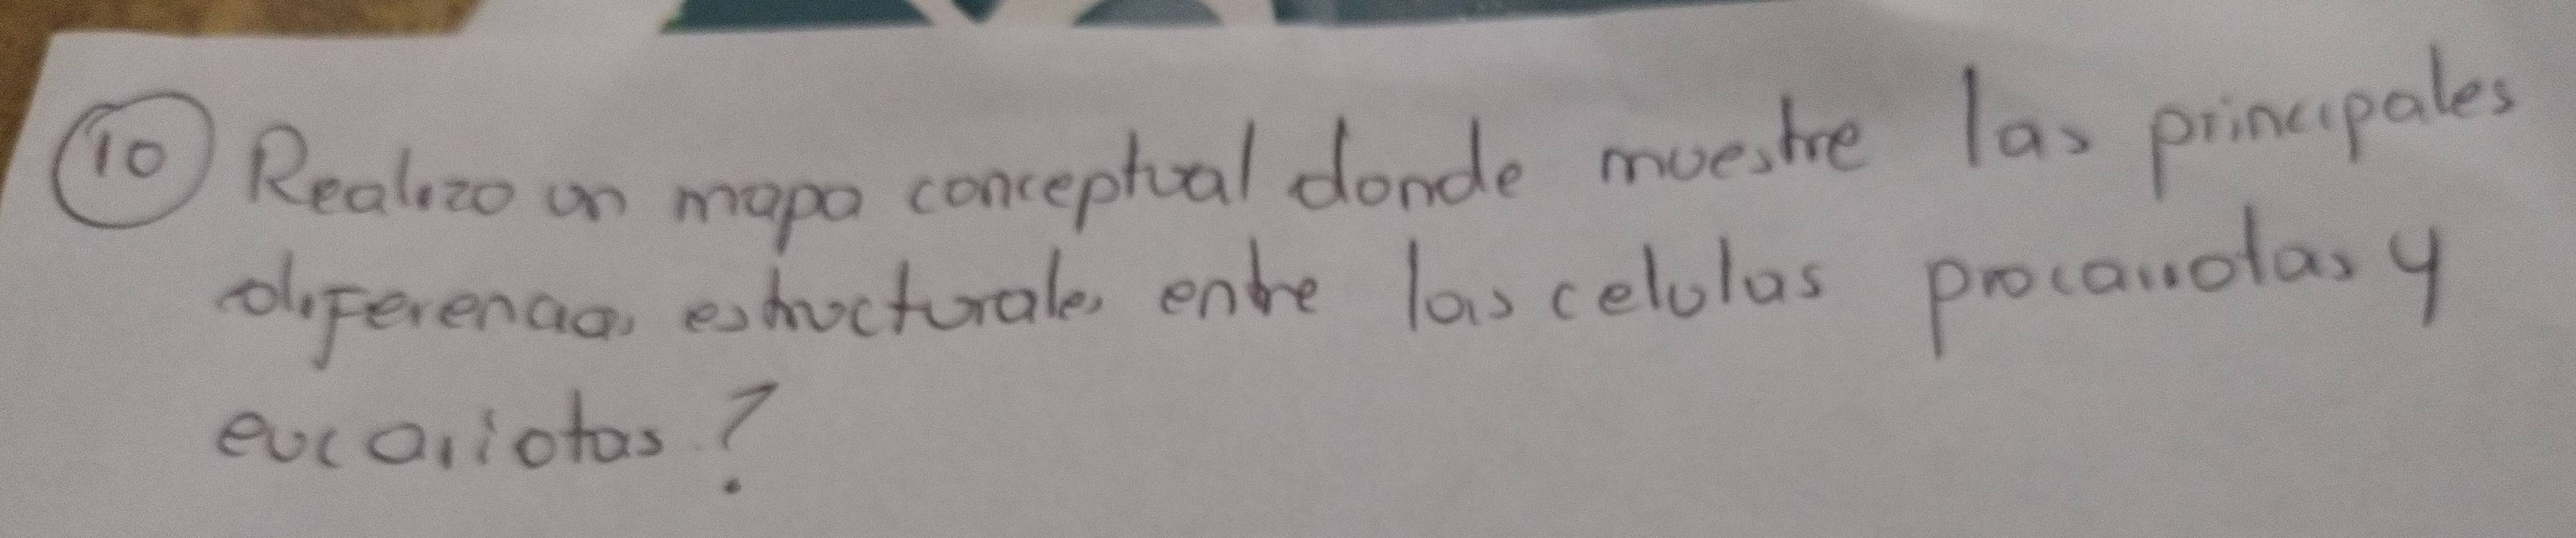 10 Realizo un mapa conceptual donde muestre las principales
diferencias estructurales entre las celulas procariotas y
eucariotas?